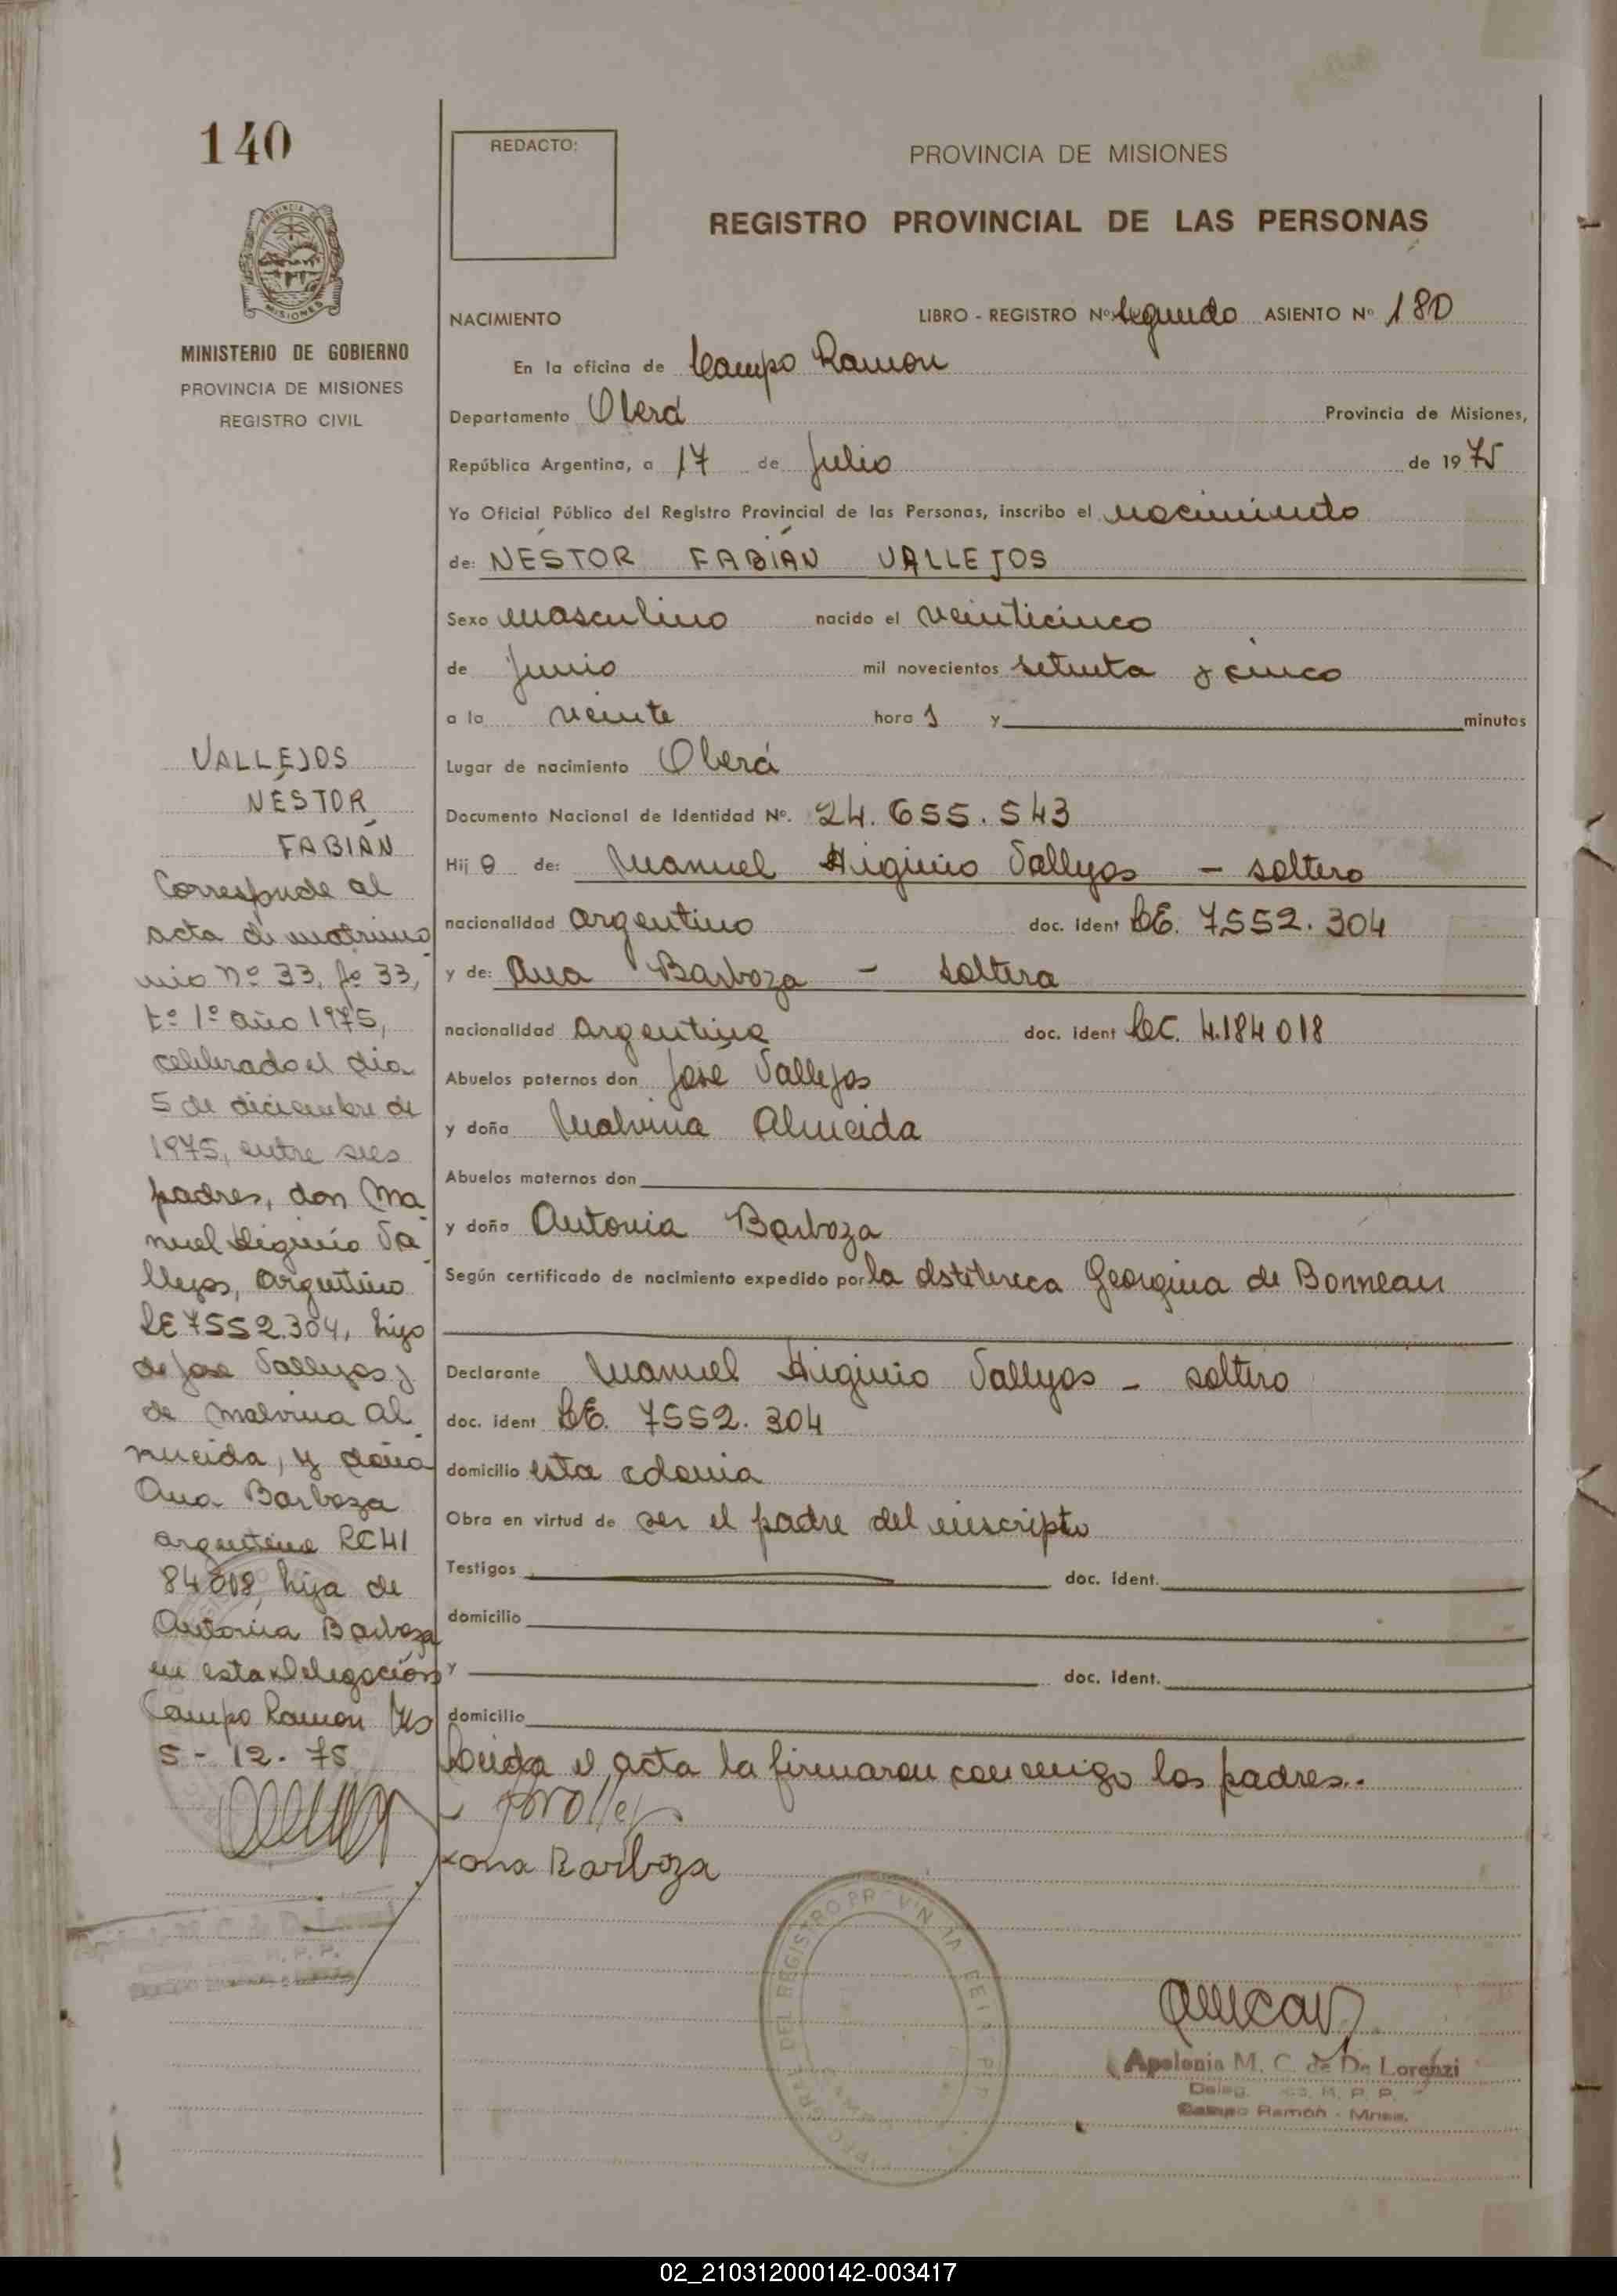 140
PROVINCIA DE
MISIONES
MINISTERIO DE GOBIERNO
PROVINCIA DE MISIONES
REGISTRO CIVIL
VALLEJOS
NÉSTOR
FABIÁN
Corresponde al
acta de matrimo
nio Nº 33, fº 33,
tº 1º año 1975,
celebrado el dia
5 de diciembre de
1975, entre sus
padres, don Ma
nuel Higinio Va
llejos, argentino
LE 7552.304, hijo
de Jose Vallejos y
de Malvina Al
meida, y doña
Ana Barboza
argentina LC 41
84018, hija de
Antonia Barboza
en esta Delegación
Campo Ramon Ms
5 - 12 - 75
REDACTO:
PROVINCIA DE MISIONES
REGISTRO PROVINCIAL DE LAS PERSONAS
NACIMIENTO LIBRO - REGISTRO Nº segundo ASIENTO Nº 180
En la oficina de Campo Ramon
Departamento Oberá Provincia de Misiones,
República Argentina, a 17 de Julio de 1975
Yo Oficial Público del Registro Provincial de las Personas, inscribo el nacimiento
de: NÉSTOR FABIÁN VALLEJOS
Sexo masculino nacido el veinticinco
de Junio mil novecientos setenta y cinco
a la veinte hora s y minutos
Lugar de nacimiento Oberá
Documento Nacional de Identidad Nº. 24.655.543
Hij o de: Manuel Higinio Vallejos - soltero
nacionalidad argentino doc. ident LE. 7.552.304
y de: Ana Barboza - soltera
nacionalidad argentina doc. ident LC. 4.184018
Abuelos paternos don José Vallejos
y doña Malvina Almeida
Abuelos maternos don
y doña Antonia Barboza
Según certificado de nacimiento expedido por la obstetreca Georgina de Bonneau
Declarante Manuel Higinio Vallejos - soltero
doc. ident LE. 7552.304
domicilio esta colonia
Obra en virtud de ser el padre del inscripto
Testigos doc. ident.
domicilio
y doc. ident.
domicilio
Leida el acta la firmaron conmigo los padres.-
x ana Barboza
Apolonia M. C. de De Lorenzi
Deleg. R. P. P.
Campo Ramón - Mnes.
02_210312000142-003417